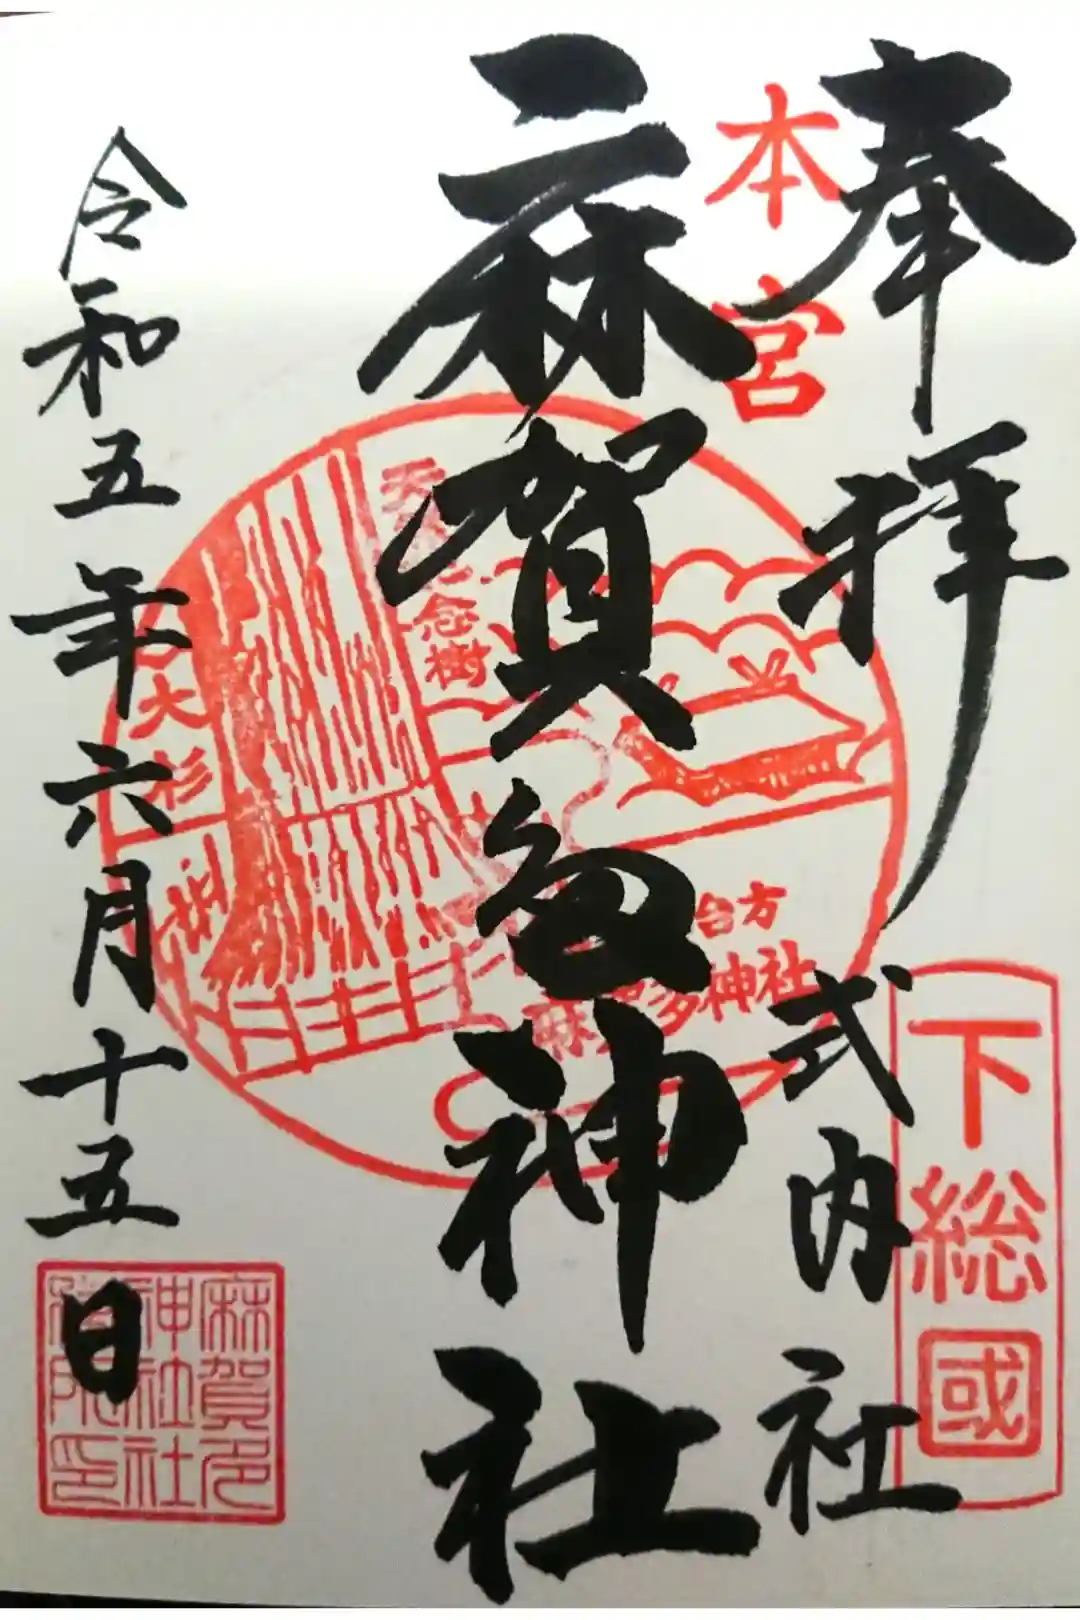 奉拝
本宮
下総國
式内社
麻賀多神社
天然記念樹
大杉
台方
麻賀多神社
令和五年六月十五日
麻賀多
神社社
務所印